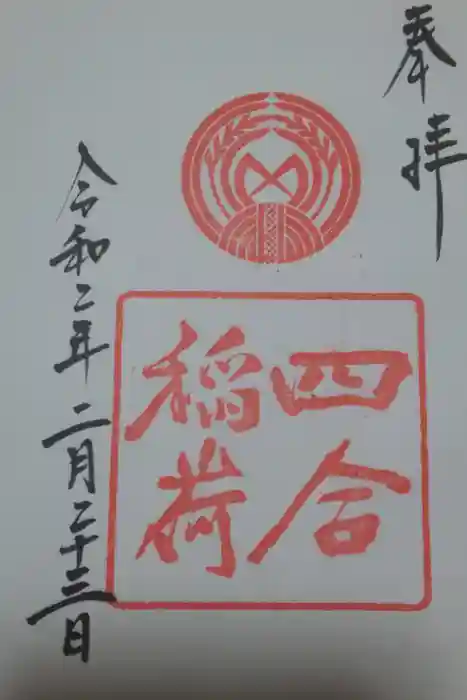 奉拝
四合
稲荷
令和二年二月二十三日